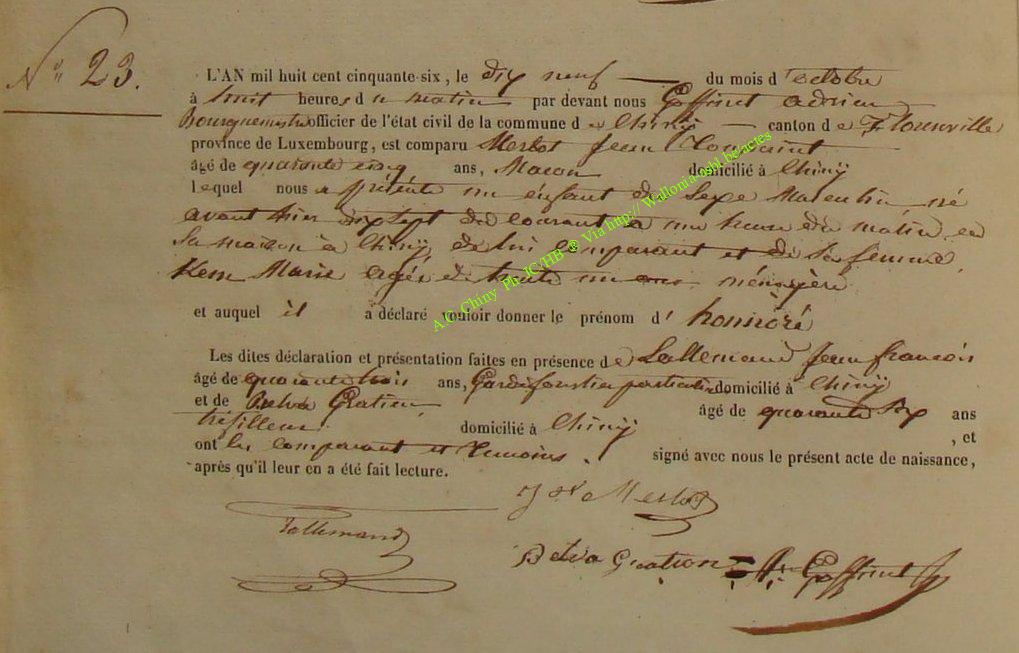 N° 23.
L'AN mil huit cent cinquante-six, le dix neuf du mois d'octobre
à huit heures du matin par devant nous Goffinet adrien
Bourguemestre officier de l'état civil de la commune de Chiny canton de Florenville
province de Luxembourg, est comparu Merlot Jean Toussaint
âgé de quarante cinq ans, Macon domicilié à Chiny
lequel nous a présenté un enfant du Sexe Masculin né
avant hier dix sept du courant à une heure du matin en
Sa maison à Chiny de lui comparant et de Sa femme
Kem Marie agée de trente un ans ménagère
et auquel il a déclaré vouloir donner le prénom d' honnoré
Les dites déclaration et présentation faites en présence de Lallemand Jean françois
âgé de quarante trois ans, Garde forestier particulier domicilié à Chiny
et de Belva Gratien âgé de quarante Six ans
tréfilleur domicilié à Chiny , et
ont les comparant et temoins. signé avec nous le présent acte de naissance,
après qu'il leur en a été fait lecture.
Merlot
Lallemand
Belva Gration Goffinet
A.C. Chiny Ph JC/HB ® Via http:// Wallonia-asbl.be:actes